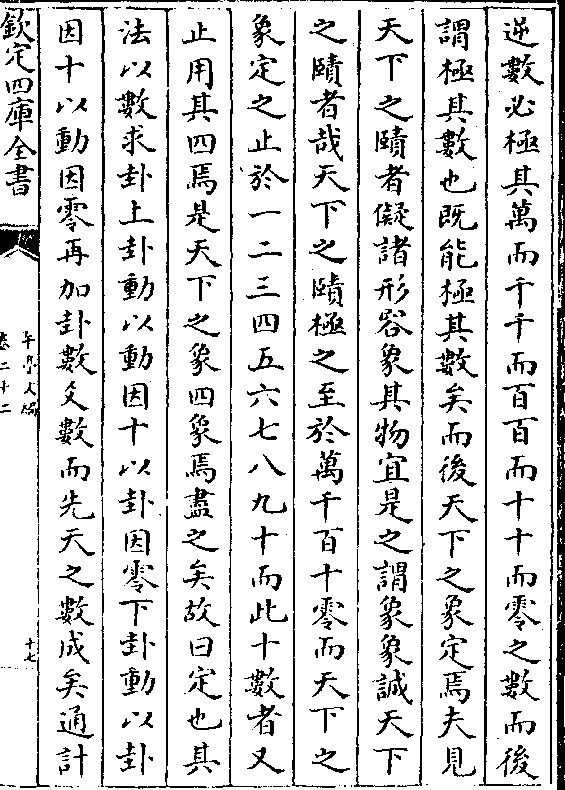 逆數必極其萬而千千而百百而十十而零之數而後
謂極其數也既能極其數矣而後天下之象定焉夫見
天下之賾者儗諸形容象其物宜是之謂象象誠天下
之賾者哉天下之賾極之至於萬千百十零而天下之
象定之止於一二三四五六七八九十而此十數者又
止用其四焉是天下之象四象焉盡之矣故曰定也其
法以數求卦上卦動以動因十以卦因零下卦動以卦
因十以動因零再加卦數爻數而先天之數成矣通計
欽定四庫全書
卷二十二
十七